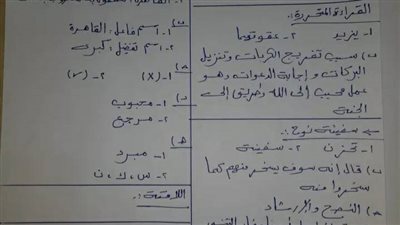 القراءة المتحررة :.
١- يزيد ٢- عقوقهما
ب) سبب تفريج الكربات وتنزيل
البركات وإجابة الدعوات وهو
عمل محبب إلى الله وطريق إلى
الجنة
سفينة نوح :.
١- تحزن ٢- سفينة
ب) قال إنه سوف يسخر منهم كما
سخروا منه
النصح والإرشاد
١- اسم فاعل : القاهرة
٢- اسم تفضيل : كبرى
١- (X) ٢- (✓)
د)
١- محبوب
٢- مرجع
هـ)
١- مبرد
٢- س ، ك ، ن
اللافتة :.